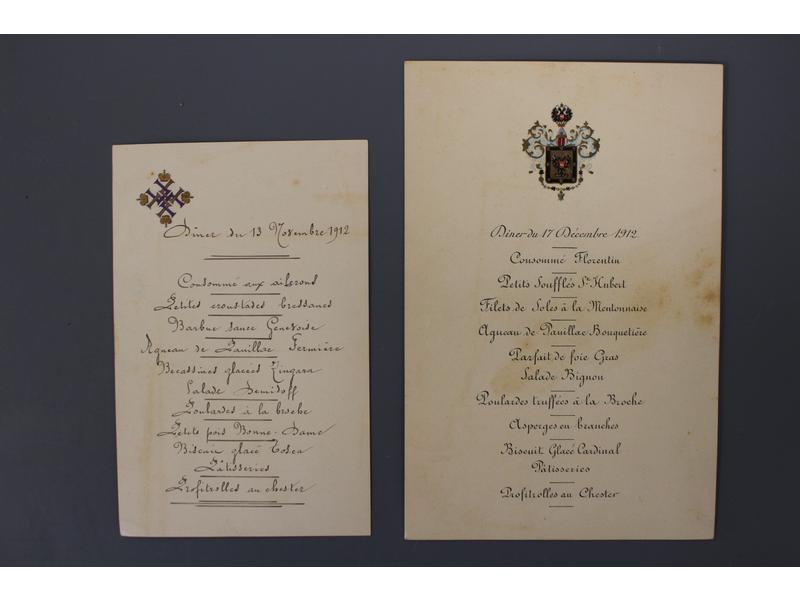 Dîner du 13 Novembre 1912
Consommé aux ailerons
Petites croustades bressanes
Barbue sauce Genevoise
Agneau de Pauillac Fermière
Becassines glacées Zingara
Salade Demidoff
Poulardes à la broche
Petits pois Bonne-Dame
Biscuit glacé Tosca
Pâtisseries
Profitrolles au chester
Dîner du 17 Décembre 1912.
Consommé Florentin
Petits Soufflés St Hubert
Filets de Soles à la Mentonnaise
Agneau de Pauillac Bouquetière
Parfait de foie Gras
Salade Bignon
Poulardes truffées à la Broche
Asperges en branches
Biscuit Glacé Cardinal
Pâtisseries
Profitrolles au Chester